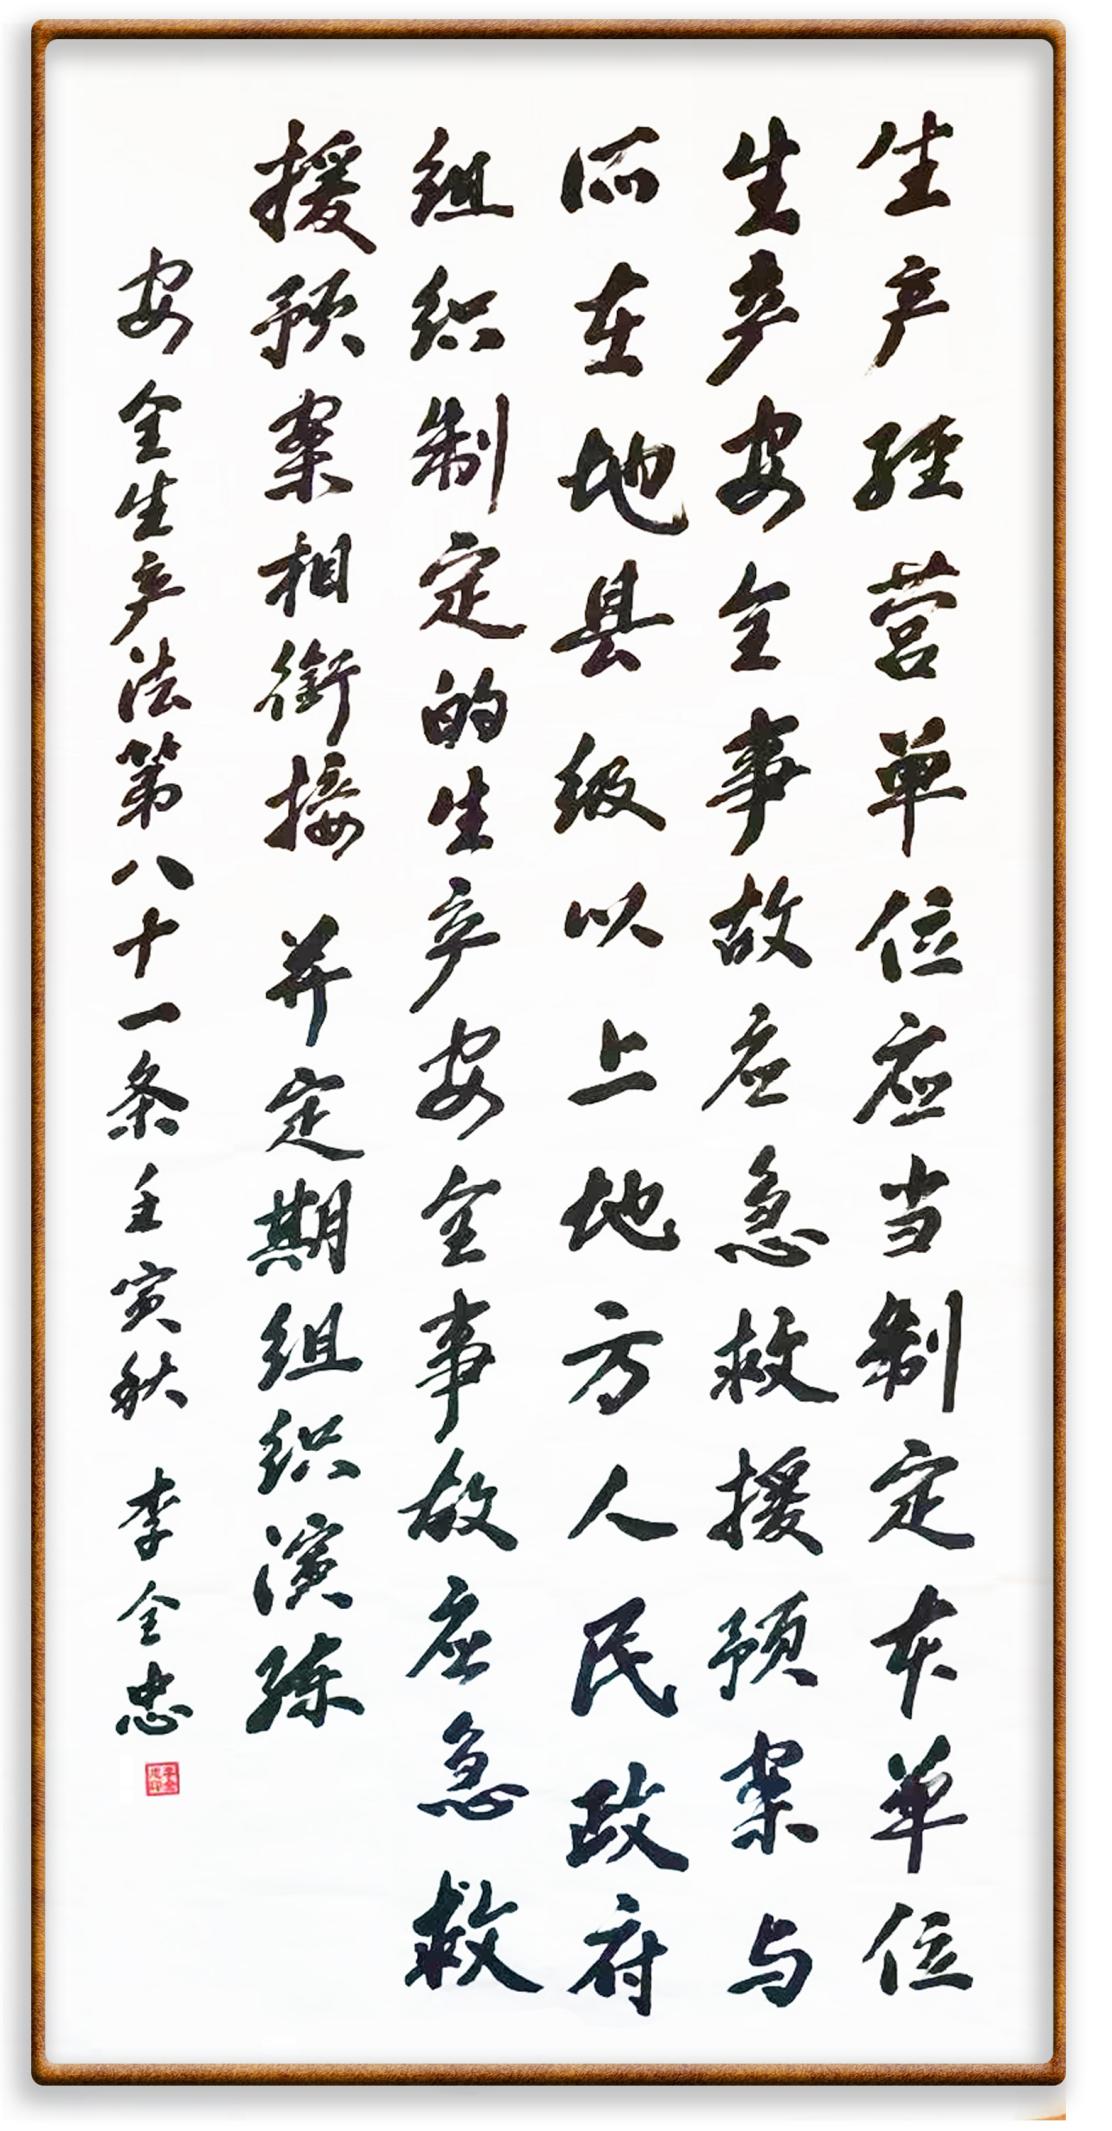 生产经营单位应当制定本单位
生产安全事故应急救援预案与
所在地县级以上地方人民政府
组织制定的生产安全事故应急救
援预案相衔接并定期组织演练
安全生产法第八十一条壬寅秋李全忠